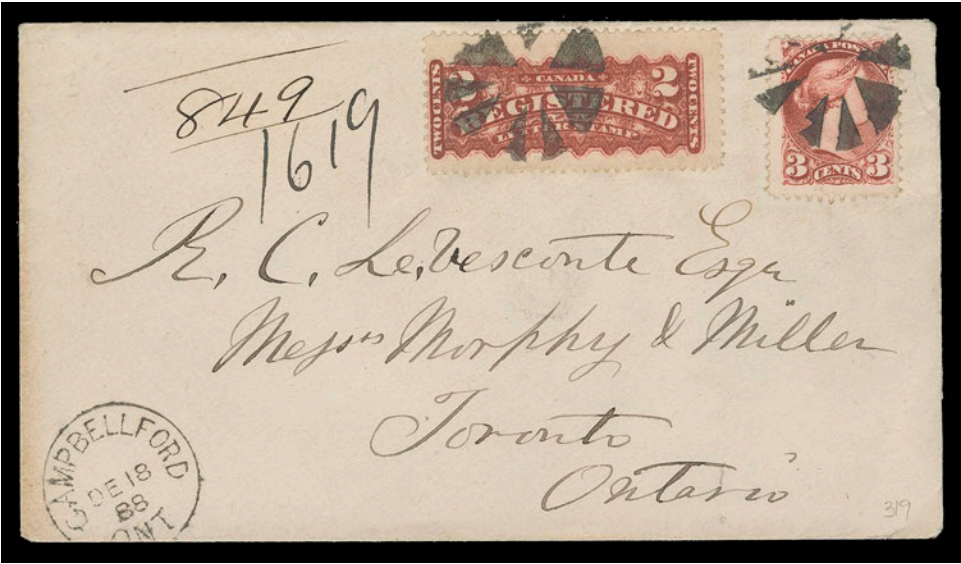 849
1619
2 CANADA 2
TWO CENTS REGISTERED TWO CENTS
LETTER STAMP
CANADA POSTAGE
3 CENTS 3
R. C. LeVesconte Esqr
Messrs Morphy & Miller
Toronto
Ontario
CAMPBELLFORD
DE 18
88
ONT
319